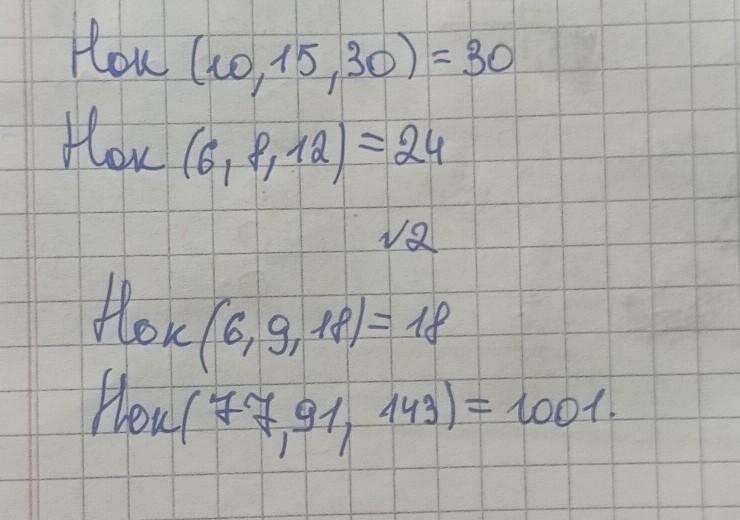 Нок (10,15,30) = 30
Нок (6, 8, 12) = 24
√2
Нок (6, 9, 18) = 18
Нок (77, 91, 143) = 1001.